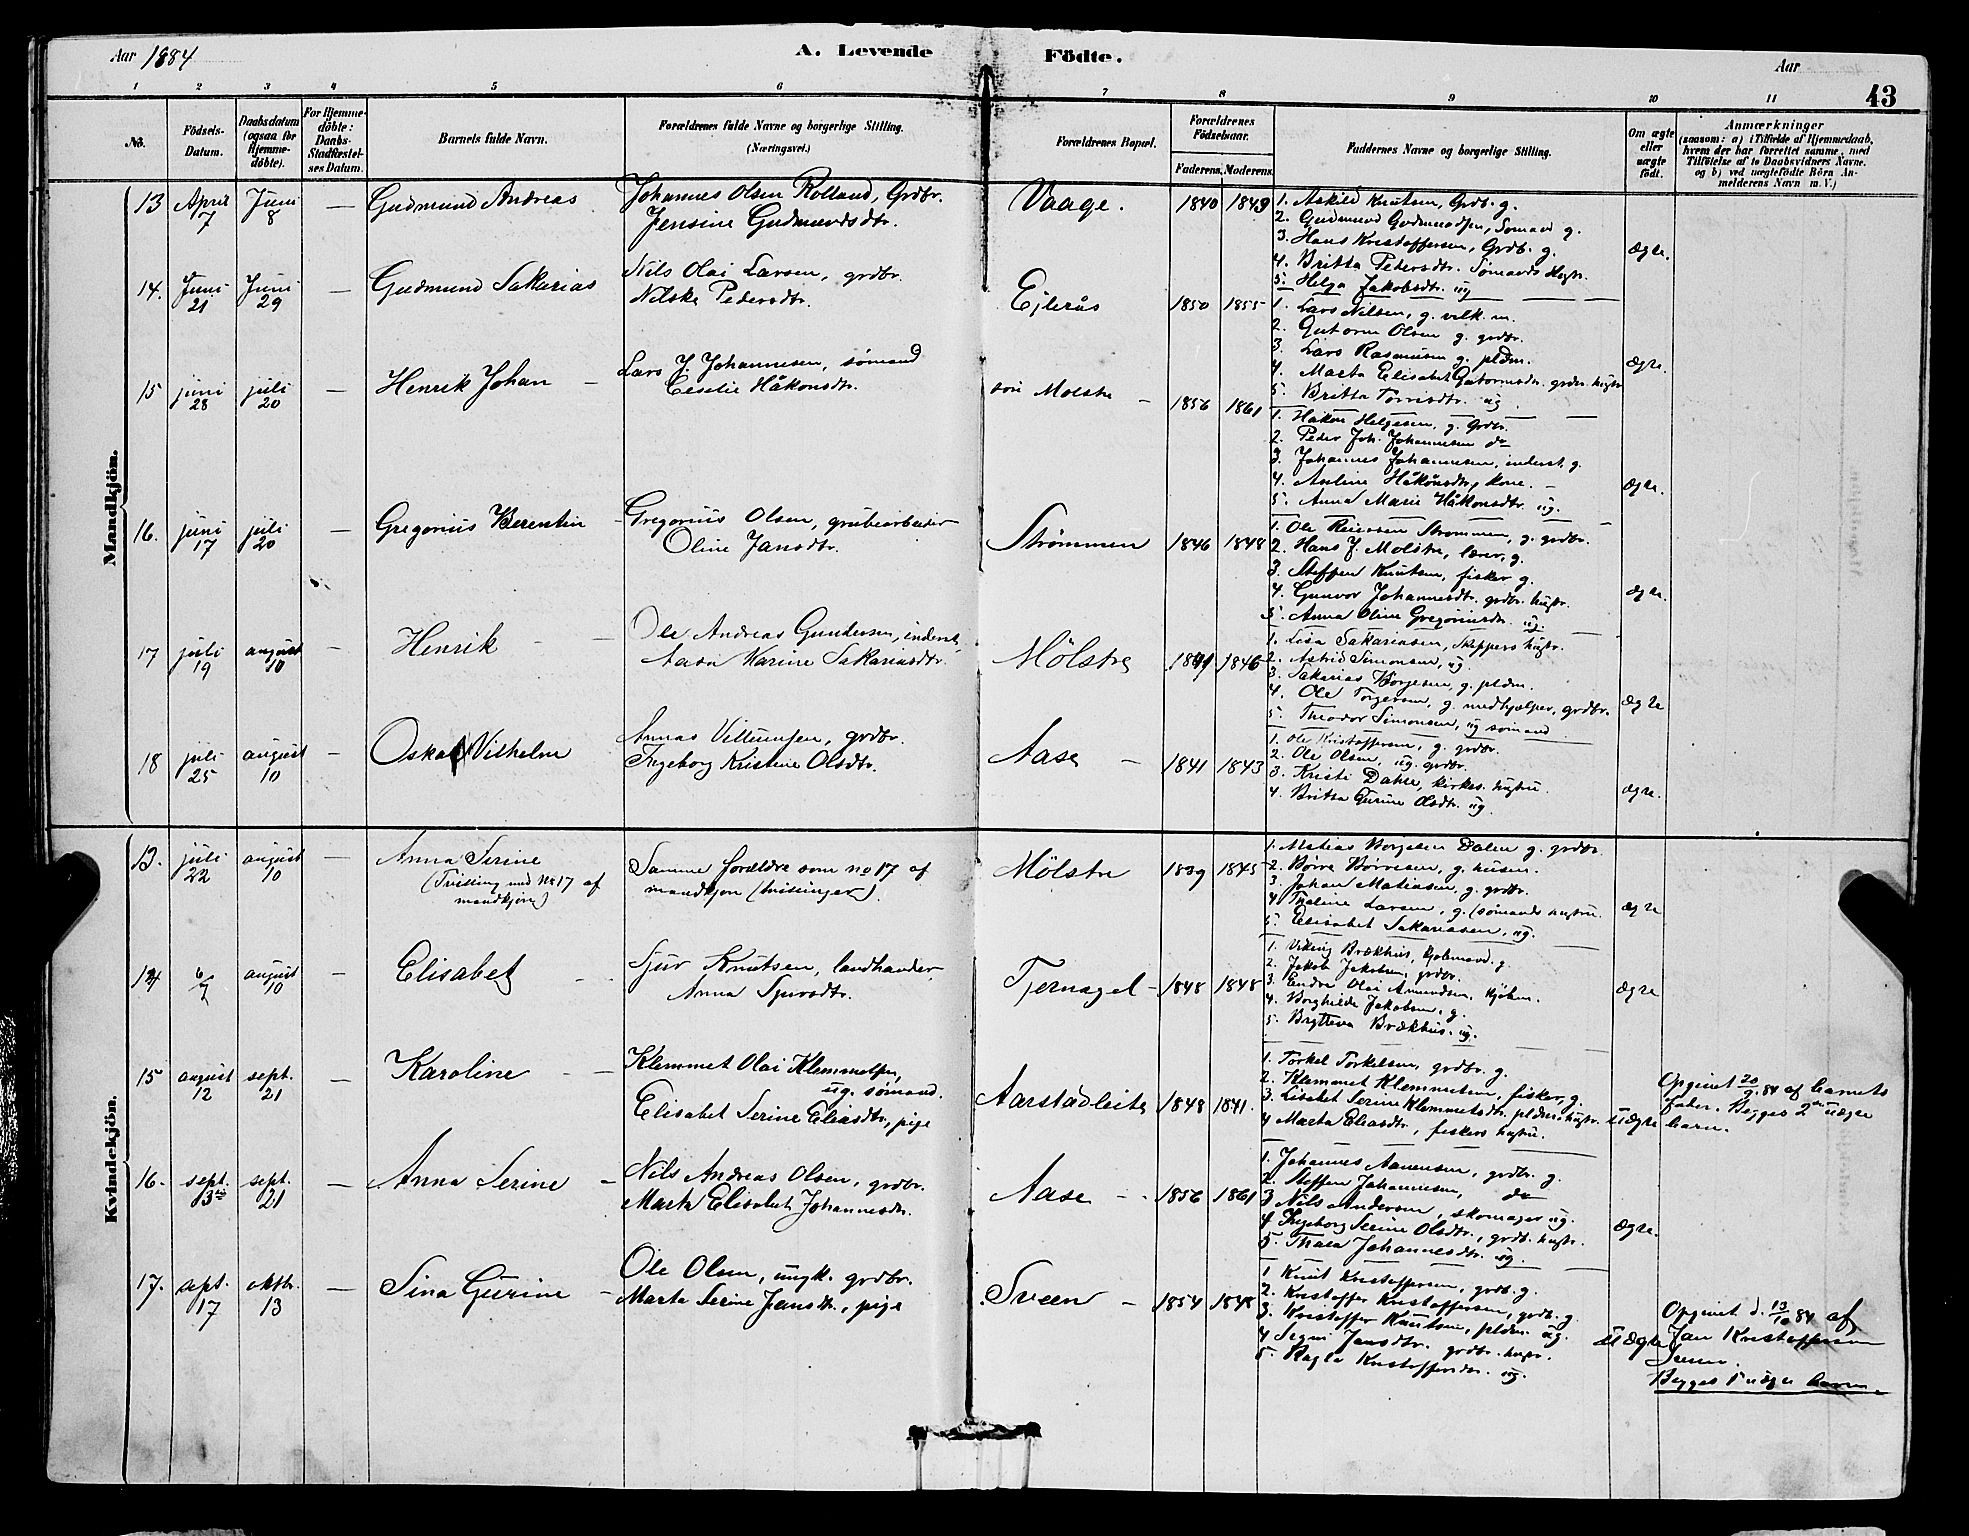 Aar 1884
A. Levende Födte.
Aar
43
1 2 3 4 5 6 7 8 9 10 11
No.
Födsels-Datum.
Daabsdatum (ogsaa for Hjemme-döbte).
For Hjemme-döbte: Daabs-Stadfæstel-ses Datum.
Barnets fulde Navn.
Forældrenes fulde Navne og borgerlige Stilling. (Næringsvei.)
Forældrenes Bopæl.
Forældrenes Födselsaar.
Faderens. Moderens.
Faddernes Navne og borgerlige Stilling.
Om ægte eller uægte födt.
Anmærkninger
(saasom: a) i Tilfælde af Hjemmedaab, hvem der har forrettet samme, med Tilföielse af to Daabsvidners Navne. og b) ved uægtefödte Börn An-melderens Navn m. V.)
Mandkjön.
13 April 7 Juni 8 — Gudmund Andreas
Johannes Olsen Rolland, Grdbr.
Jensine Gudmundsdtr.
Vaage. 1840 1849
1. Askild Knutsen, Grdb. g.
2. Gudmund Gudmundsen, Sømand g.
3. Hans Kristoffersen, Grdb. g.
4. Britta Pedersdtr. Sømands Hustr.
5. Helga Jakobsdtr. ug
Ægte.
14. Juni 21 Juni 29 — Gudmund Sakarias
Nils Olai Larsen, grdbr.
Nilske Pedersdtr.
Ejlerås 1850 1855
1. Lars Nilsen, g. velk. m.
2. Gutorm Olsen g. grdbr.
3. Lars Rasmusen g. pldm.
4. Marta Elisabet Gutormsdtr. grdbr. hustr
5. Britta Torrisdtr. ug.
Ægte.
15 juni 28 juli 20 — Henrik Johan —
Lars J. Johannesen, sømand
Ceselie Håkonsdtr.
Molstre — 1856 1861
1. Håkon Helgesen, g. Grdbr.
2. Peder Joh. Johannesen do
3. Johannes Johannesen, inderst, g.
4. Anline Håkonsdtr, kone. —
5. Anna Marie Håkonsdtr. ug.
Ægte.
16. juni 17 juli 20 — Gregorius Berentin
Gregorius Olsen, grubearbeider
Oline Jansdtr.
Strømmen 1846 1848
1. Ole Reiersen Strømmen, g. grdbr.
2. Hans J. Molstre, lærer, g.
3. Steffen Knutsen, fisker g.
4. Gunvor Johannesdtr. grdbr. hustr.
5. Anna Oline Gregoriusdtr. ug.
Ægte.
17 juli 19 august 10 — Henrik —
Ole Andreas Gundersen, inderst,
Aasa Karine Sakariasdtr.
Mølstre 1846
1. Lisa Sakariasen, Skippers hustr.
2. Astrid Simonsen, ug.
3. Sakarias Borgesen, g. pldm.
4. Ole Torgersen, g. medhjælper, grdbr.
5. Theodor Simonsen, ug sømand
Ægte
18 juli 25 august 10 — Oskar Vilhelm
Annas Villumsen, grdbr.
Ingeborg Kristine Olsdtr.
Aase — 1841 1843
1. Ole Kristoffersen, g. grdbr.
2. Ole Olsen, ug. grdbr.
3. Kristi Dahle, kirkes. hustru.
4. Britta Gurine Olsdtr. ug.
Ægte.
Kvindekjön.
13. juli 22 august 10 — Anna Serine
(Tvilling med No 17 af mandkjøn)
Samme forældre som no 17 af
mandkjøn (tvillinger).
Mölstre 1839 1845
1. Matias Borgesen Dalen g. grdbr.
2. Børre Børresen, g. husm.
3. Johan Matiasen, g. grdbr.
4 Thaline Larsen, g. (sømands hustru.
5. Elisabet Sakariasen, ug.
Ægte
14 6/7 august 10 — Elisabet —
Sjur Knutsen, landhandler
Anna Sjursdtr.
Tjernagel — 1848 1848
1. Viking Brækhus, Kjøbmand. g.
2. Jakob Jakobsen, grdbr.
3. Endre Olai Amundsen, Kjøbm.
4. Borghilde Jakobsen, g.
5. Brytteva Brækhus. ug.
Ægte
15 august 12 sept. 21 — Karoline —
Klemmet Olai Klemmetsen,
ug. sømand.
Elisabet Serine Eliasdtr, pige
Aarstadleite 1848 1841.
1. Torkel Torkelsen, grdbr. g.
2. Klemmet Klemmetsen, fisker, g.
3. Lisabet Serine Klemmetsdtr. pldms. hustr.
4 Marta Eliasdtr, fiskers hustru.
Uægte
Opgivet 20/9 84 af barnets
fader. Begges 2det uægte
barn.
16. sept. 13de sept. 21 — Anna Serine —
Nils Andreas Olsen, grdbr.
Marta Elisabet Johannesdtr.
Aase — 1856 1861
1. Johannes Aanensen, grdbr. g.
2. Steffen Johannesen, do
3 Nils Andersen, skomager ug.
4 Ingeborg Serine Olsdtr., grdb. hustr.
5. Thala Johannesdtr. ug.
Ægte.
17. sept. 17 oktbr. 13 — Sina Gurine —
Ole Olsen, ungk. grdbr.
Marta Serine Jansdtr., pige
Sveen — 1854 1848
1 Knut Kristoffersen, grdb. g.
2. Kristoffer Kristoffersen, grdb. g
3. Kristoffer Knutsen, pldm. ug.
4 Segni Jansdtr. grdbr. hustr.
5. Ragla Kristoffersdtr. ug.
Uægte
Opgivet d. 13/10 84 af
Jan Kristoffersen
Sveen.
Begges 1 uægte barn.